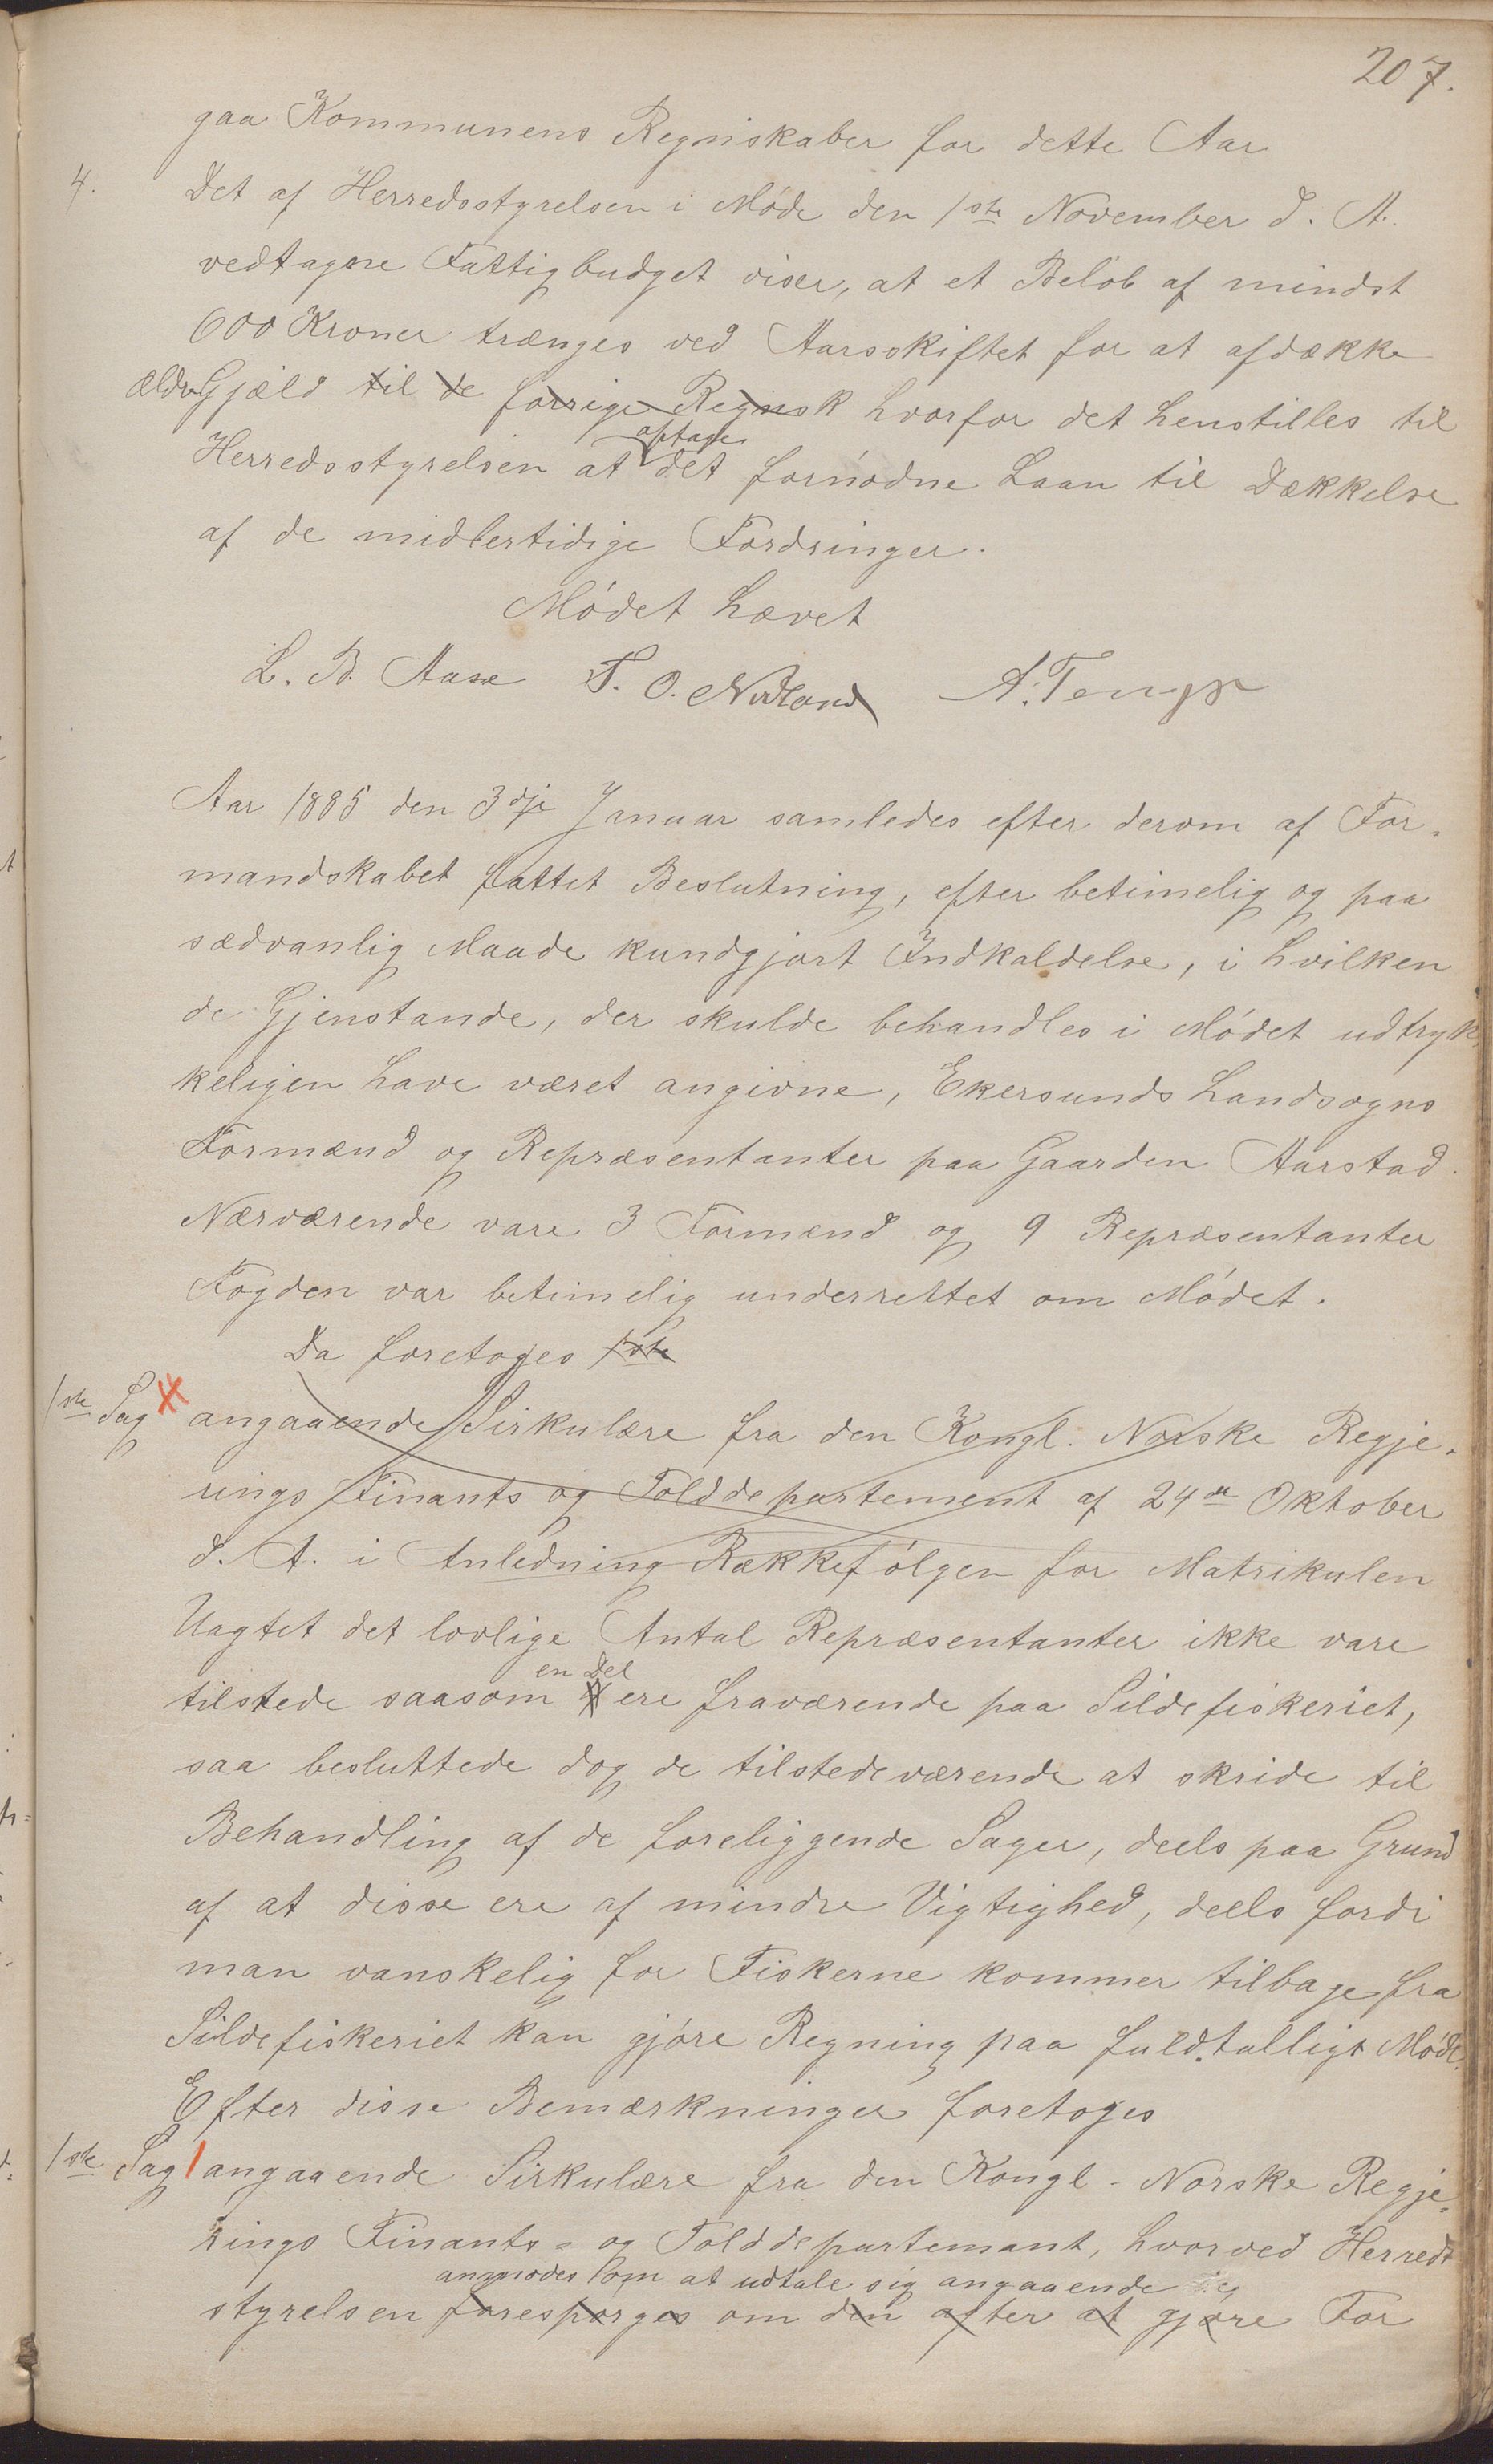 207.
gaa Kommunens Regnskaber for dette Aar
4. Det af Herredsstyrelsen i Møde den 1ste November d. A.
vedtagne Fattigbudget viser, at et Beløb af mindst
600 Kroner trænges ved Aarsskiftet for at afdække
ældre Gjæld til de forrige Regnsk hvorfor det henstilles til
optage
Herredsstyrelsen at det fornødne Laan til Dækkelse
af de midlertidige Fordringer.
Mødet hævet
L. B. Aase T. O. Nodland A. Tengs
Aar 1885 den 3dje Januar samledes efter derom af For-
mandskabet fattet Beslutning, efter betimelig og paa
sædvanlig Maade kundgjort Indkaldelse, i hvilken
de Gjenstande, der skulde behandles i Mødet udtryk-
keligen have været angivne, Ekersunds Landsogns
Formænd og Repræsentanter paa Gaarden Aarstad.
Nærværende vare 3 Formænd og 9 Repræsentanter
Fogden var betimelig underrettet om Mødet.
Da foretoges 1ste
1ste Sag angaaende Sirkulære fra den Kongl. Norske Regje-
rings Finants og Tolddepartement af 24de Oktober
d. A. i Anledning Rækkefølgen for Matrikulen
Uagtet det lovlige Antal Repræsentanter ikke vare
en Del
tilstede saasom ere fraværende paa Sildefiskeriet,
saa besluttede dog de tilstedeværende at skride til
Behandling af de foreliggende Sager, deels paa Grund
af at disse ere af mindre Vigtighed, deels fordi
man vanskelig før Fiskerne kommer tilbage fra
Sildefiskeriet kan gjøre Regning paa fuldtalligt Møde.
Efter disse Bemærkninger foretoges
1ste Sag angaaende Sirkulære fra den Kongl. Norske Regje-
rings Finants- og Tolddepartemant, hvorved Herreds
anmodes om at udtale sig angaaende
styrelsen forespørges om den agter at gjøre For